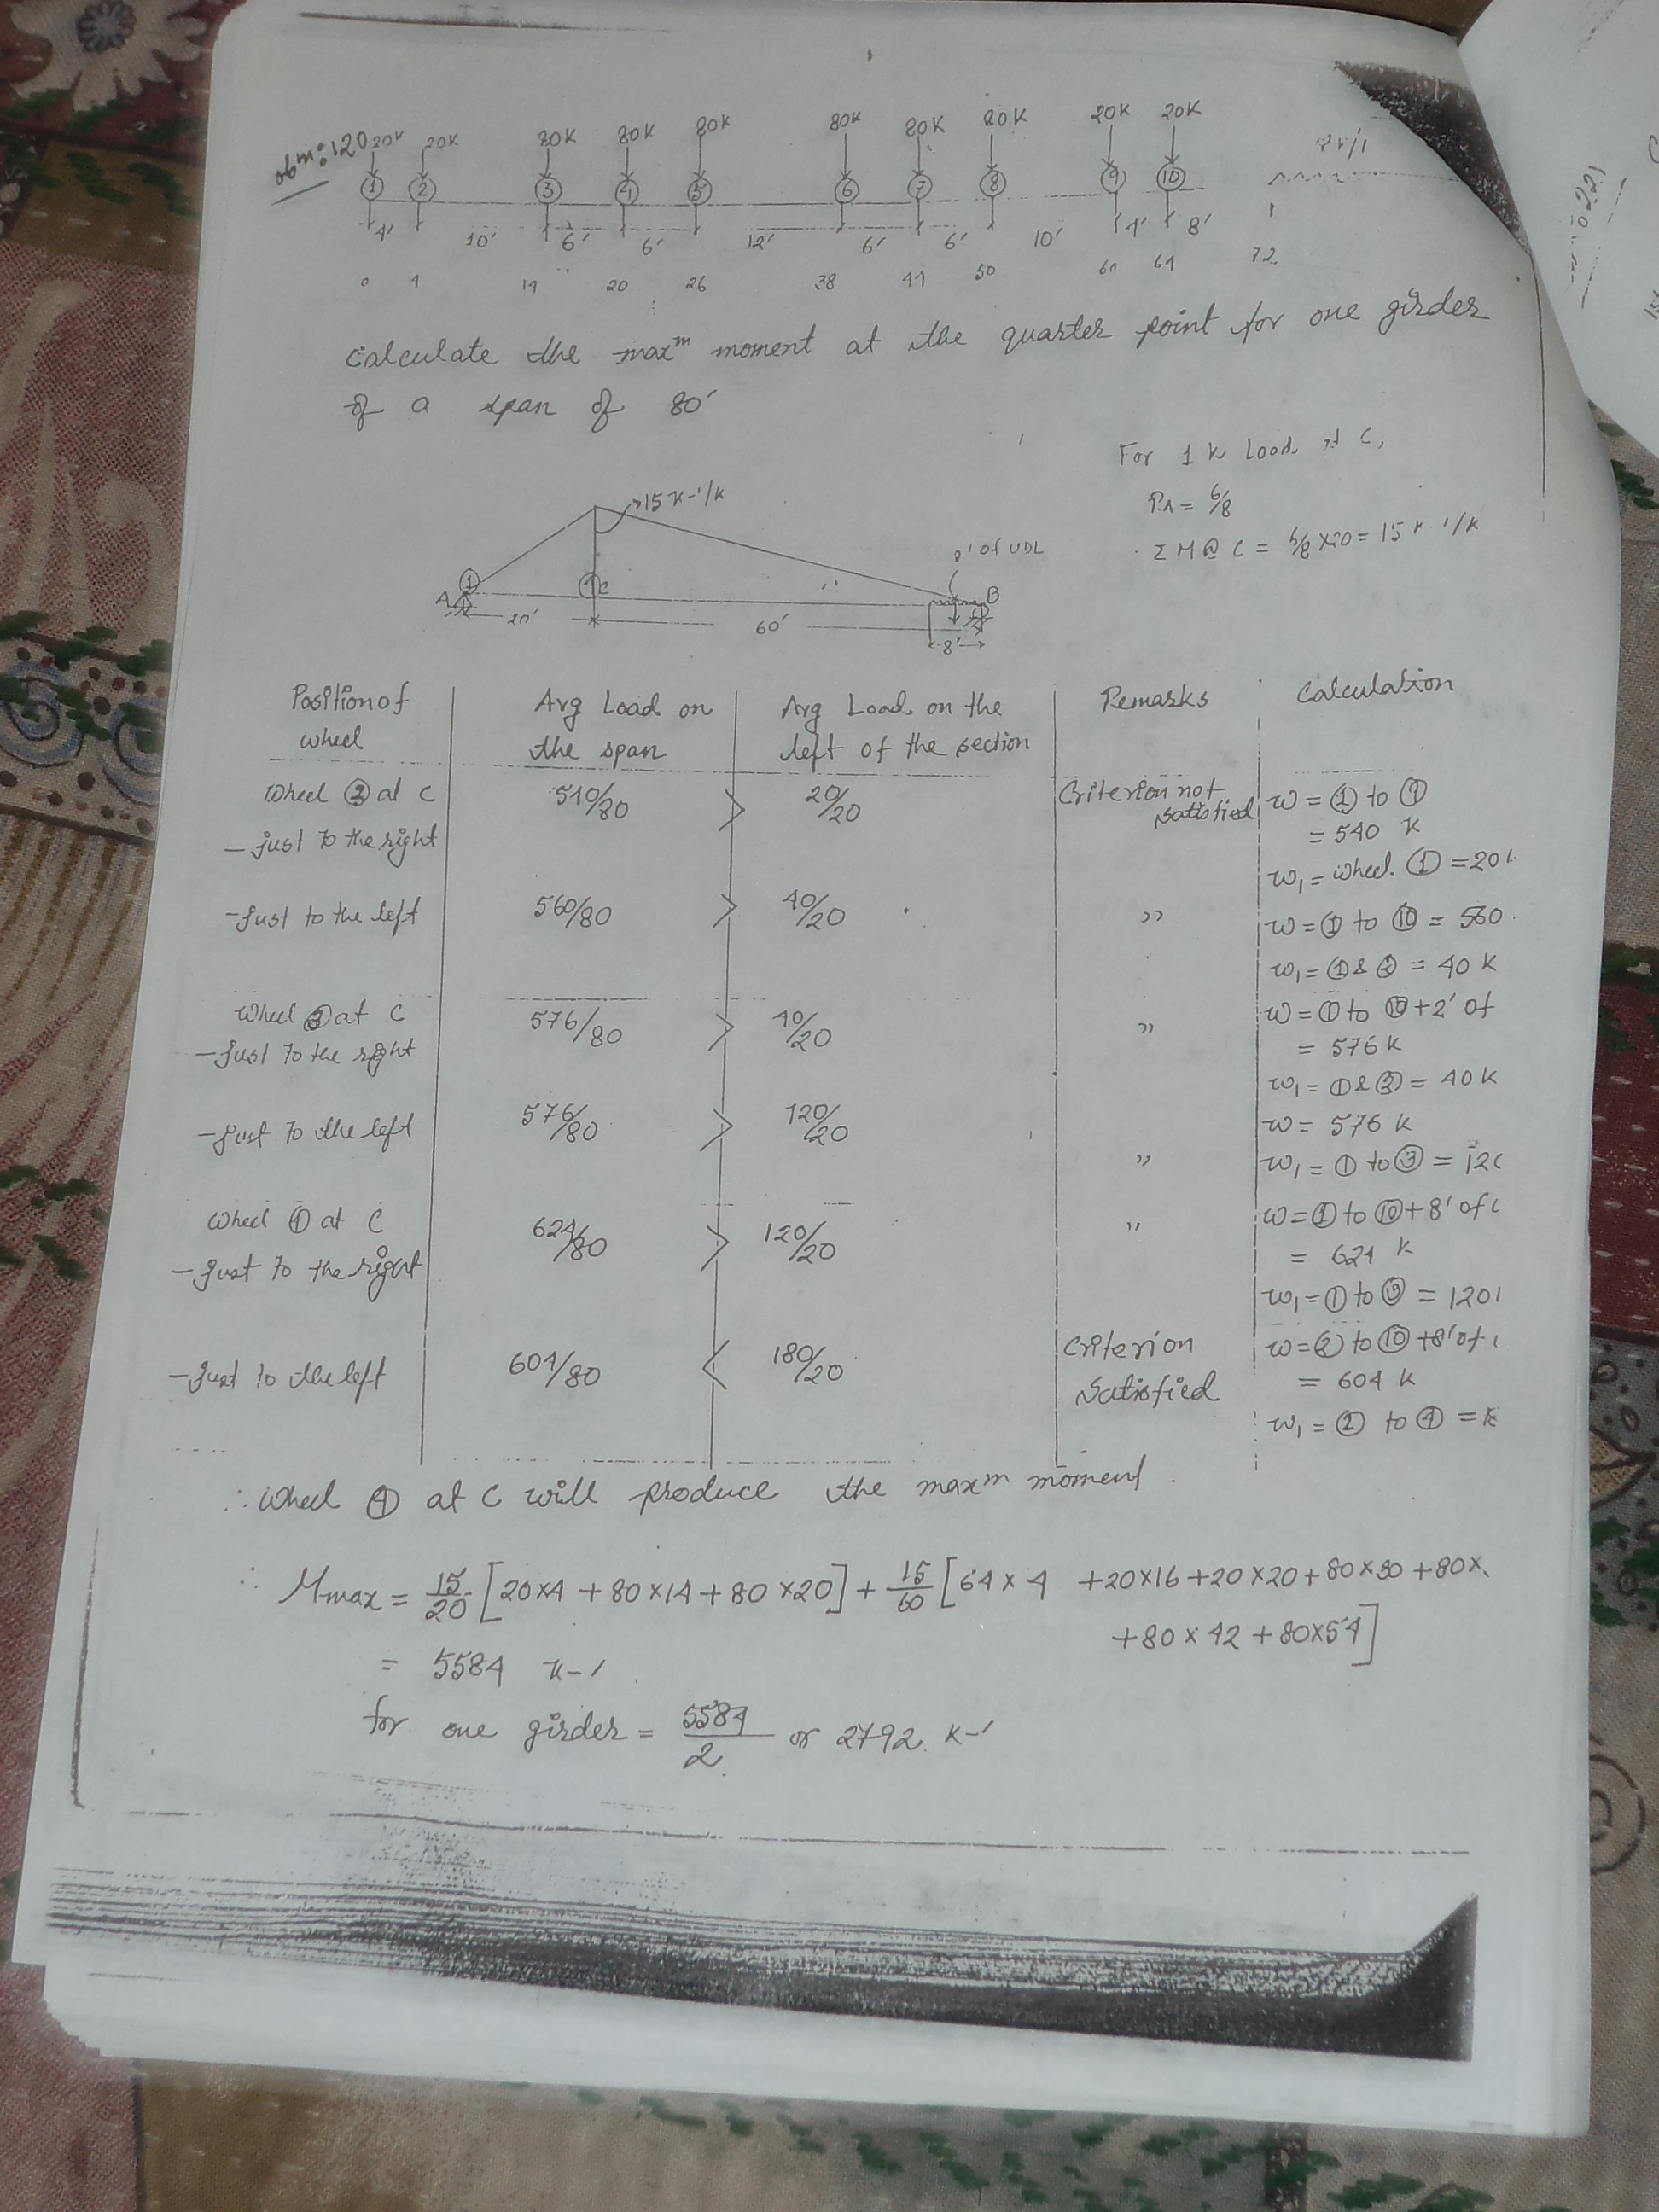 obm: 120
20K 20K 80K 80K 80K 80K 80K 80K 20K 20K
1 2 3 4 5 6 7 8 9 10
4' 10' 6' 6' 12' 6' 6' 10' 4' 8'
0 4 14 20 26 38 44 50 60 64 72
calculate the maxm moment at the quarter point for one girder
of a span of 80'
For 1 k Load at C,
RA = 6/8
ΣM@C = 6/8 x20 = 15 K-'/K
15 K-'/K
8' of UDL
A 1 4 C B
20' 60' 8'
Position of wheel | Avg Load on the span | Avg Load on the left of the section | Remarks | Calculation
Wheel 2 at C
- Just to the right | 540/80 > 20/20 | Criterion not satisfied | w = 1 to 9
= 540 K
w1 = wheel 1 = 20
- Just to the left | 560/80 > 40/20 | " | w = 1 to 10 = 560
w1 = 1 & 2 = 40 K
Wheel 3 at C
- Just to the right | 576/80 > 40/20 | " | w = 1 to 10 + 2' of
= 576 K
w1 = 1 & 2 = 40 K
- Just to the left | 576/80 > 120/20 | " | w = 576 K
w1 = 1 to 3 = 120
Wheel 4 at C
- Just to the right | 624/80 > 120/20 | " | w = 1 to 10 + 8' of
= 624 K
w1 = 1 to 3 = 120
- Just to the left | 604/80 < 180/20 | Criterion Satisfied | w = 2 to 10 + 8' of
= 604 K
w1 = 2 to 4 = K
∴ Wheel 4 at C will produce the maxm moment.
∴ Mmax = 15/20 [20x4 + 80x14 + 80x20] + 15/60 [64x4 + 20x16 + 20x20 + 80x30 + 80x
+ 80x42 + 80x54]
= 5584 K-'
for one girder = 5584/2 or 2792 K-'